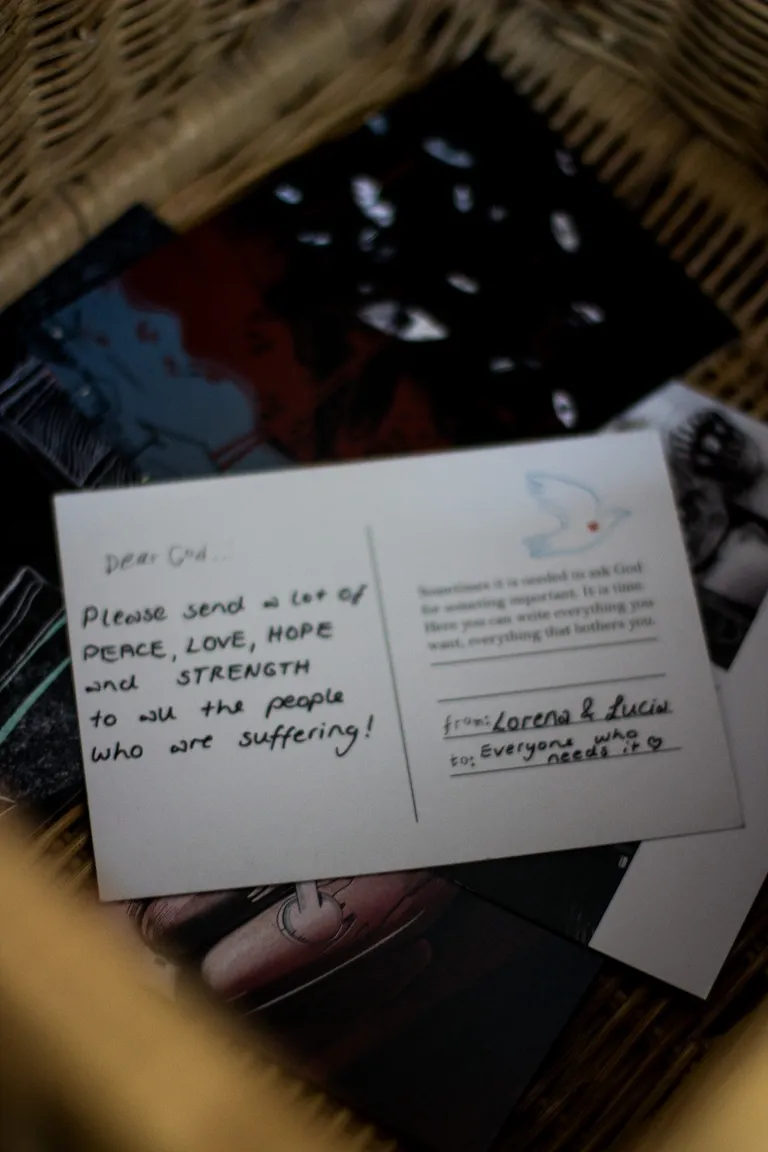 Dear God...
Please send a lot of
PEACE, LOVE, HOPE
and STRENGTH
to all the people
who are suffering!
Sometimes it is needed to ask God
for someting important. It is time.
Here you can write everything you
want, everything that bothers you.
from: Lorena & Lucia
to: Everyone who
needs it ♡